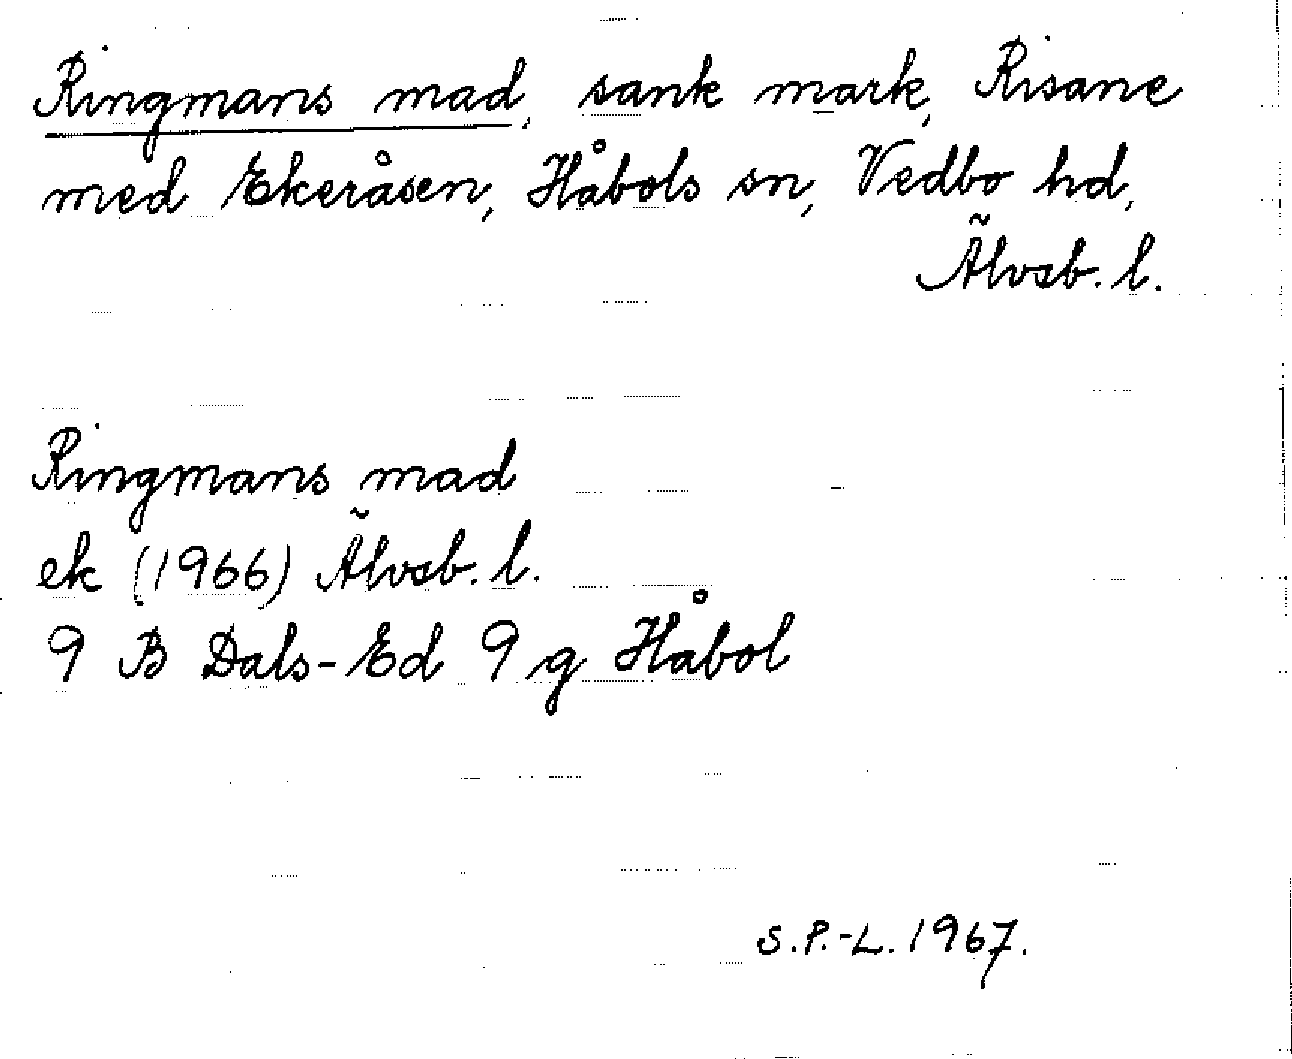 Ringmans mad, sank mark, Risane
med Ekeråsen, Håbols sn, Vedbo hd,
Älvsb. l.
Ringmans mad
ek (1966) Älvsb. l.
9 B Dals-Ed 9 g Håbol
S.P.-L. 1967.